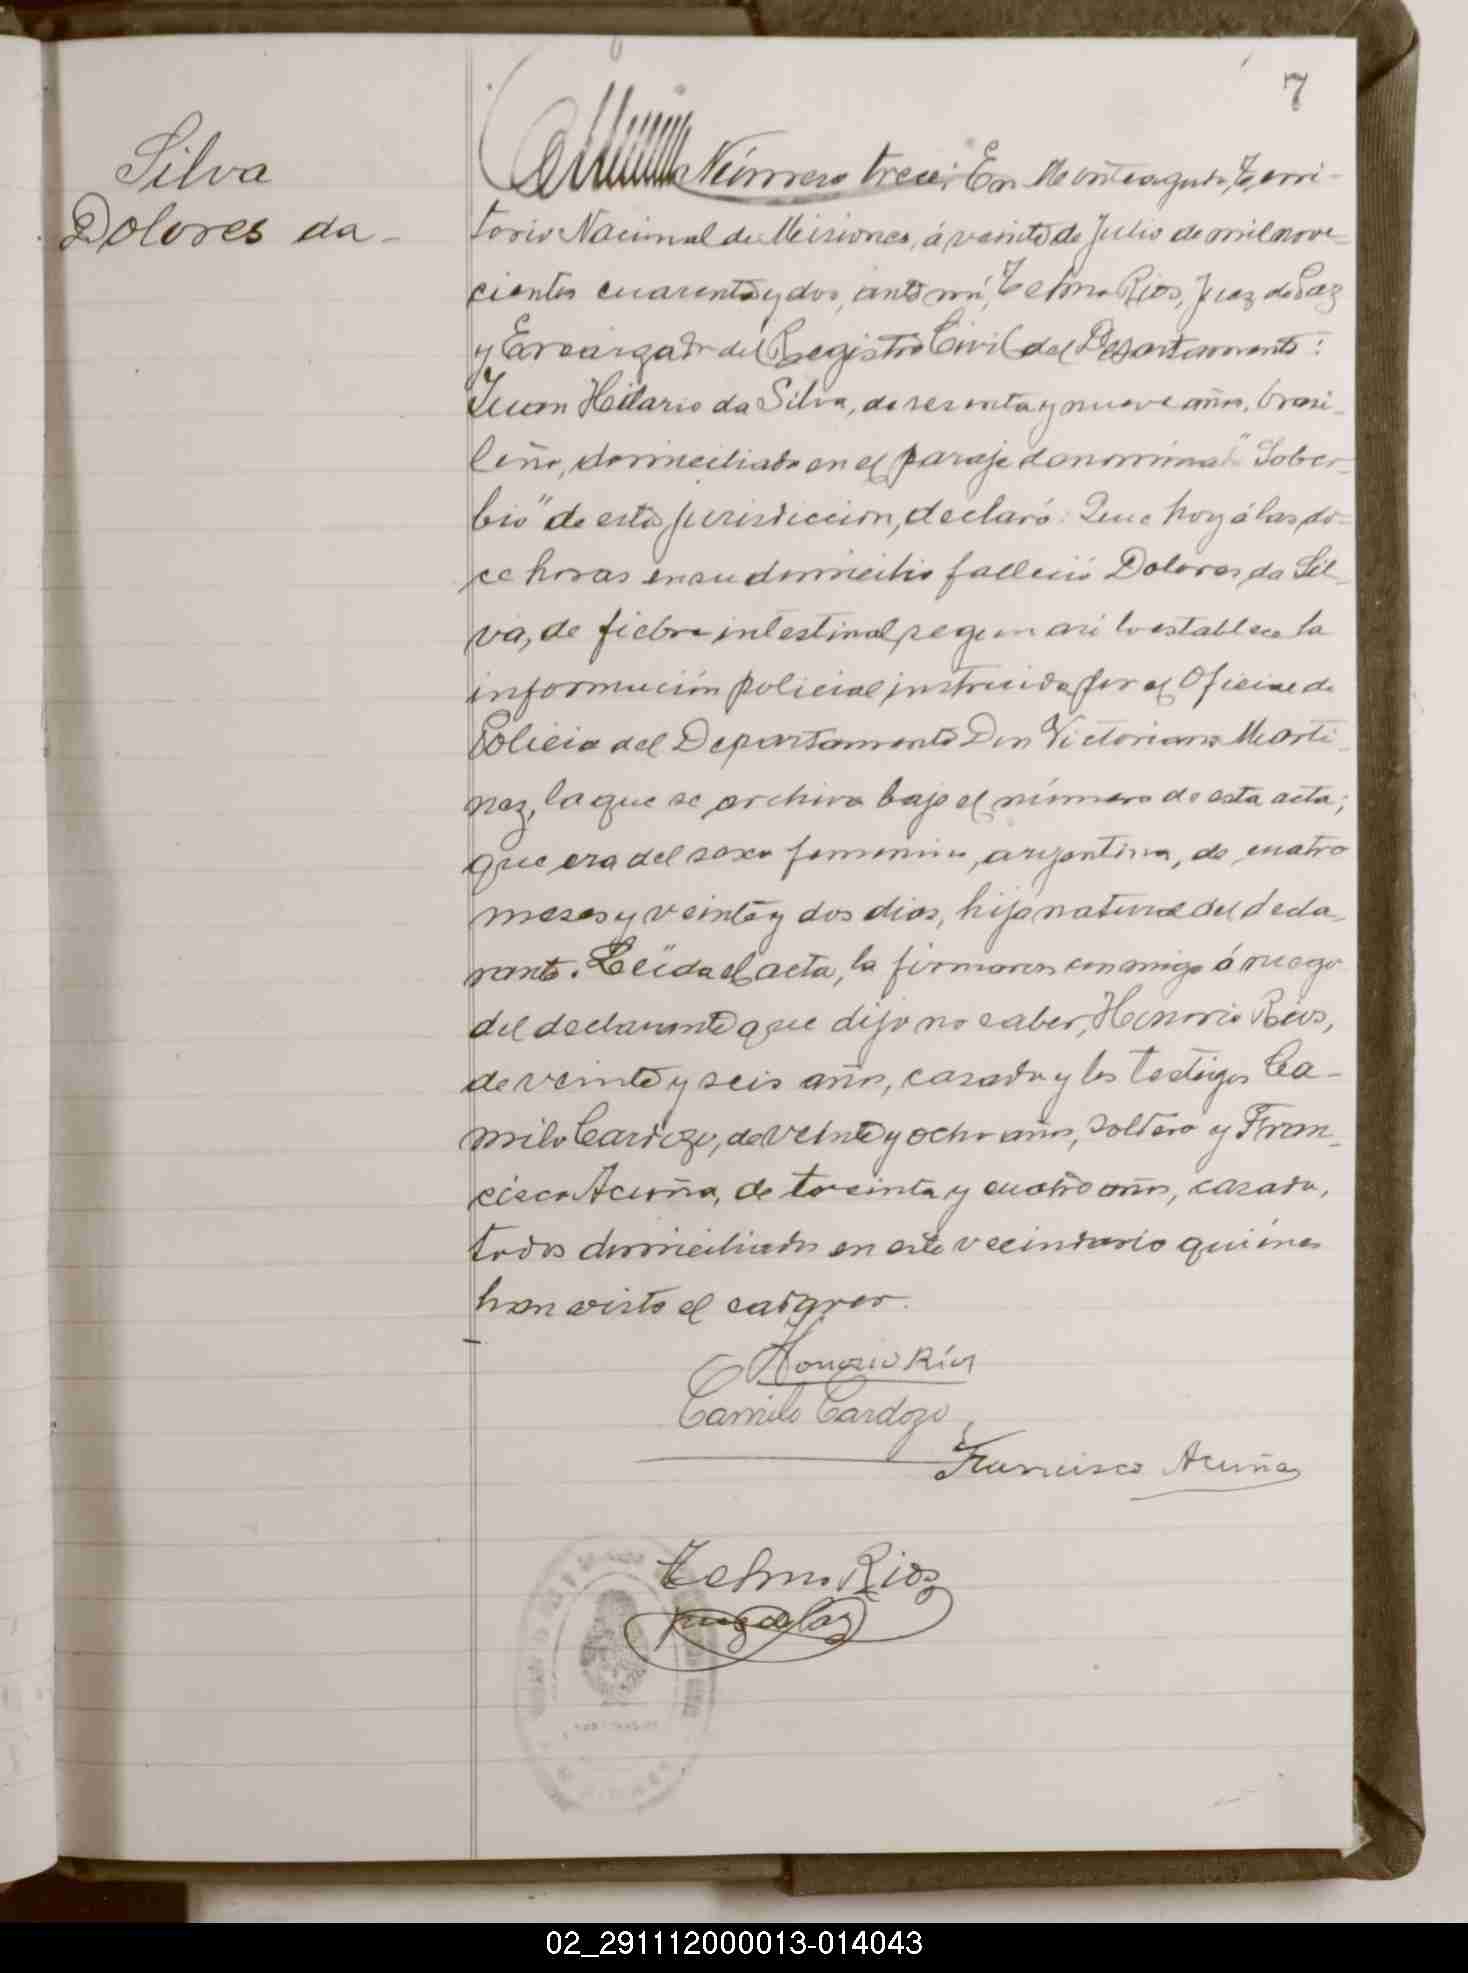 7
Silva
Dolores da-
Número trece: En Monteagudo, Terri-
torio Nacional de Misiones, á veinte de Julio de mil nove-
cientos cuarenta y dos, ante mí, Telmo Rios, Juez de Paz
y Encargado del Registro Civil del Departamento:
Juan Hilario da Silva, de sesenta y nueve años, brasi-
leño, domiciliado en el paraje denomina "Sober-
bio" de esta jurisdicción, declaró: Que hoy á las do-
ce horas en su domicilio falleció Dolores da Sil-
va, de fiebre intestinal, segun asi lo establece la
información policial instruida por el Oficial de
Policia del Departamento Don Victoriano Marti-
nez, la que se archiva bajo el número de esta acta;
que era del sexo femenino, argentina, de cuatro
meses y veinte y dos dias, hija natural del decla-
rante. Leida el acta, la firmaron conmigo á ruego
del declarante que dijo no saber, Honorio Rios,
de veinte y seis años, casado y los testigos Ca-
milo Cardozo, de veinte y ocho años, soltero y Fran-
cisco Acuña, de treinta y cuatro años, casado,
todos domiciliados en este vecindario quiénes
han visto el cadaver.
Honorio Ríos
Camilo Cardozo
Francisco Acuña
Telmo Rios
Juez de Paz
02_291112000013-014043